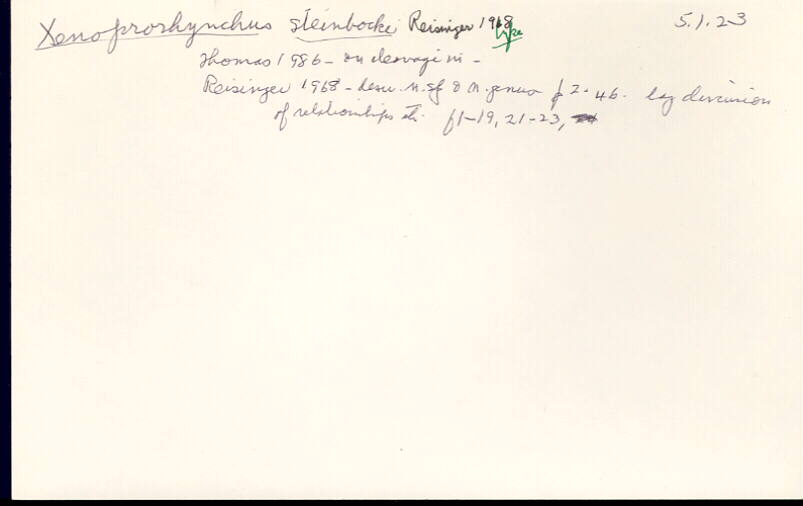 Xenoprorhynchus steinbocki Reisinger 1968 type 5.1.23
Thomas 1986 - on cleavage in -
Reisinger 1968 - descr. n. sp & n. genus p 2-46. lg discussion
of relationships etc. f1-19, 21-23,